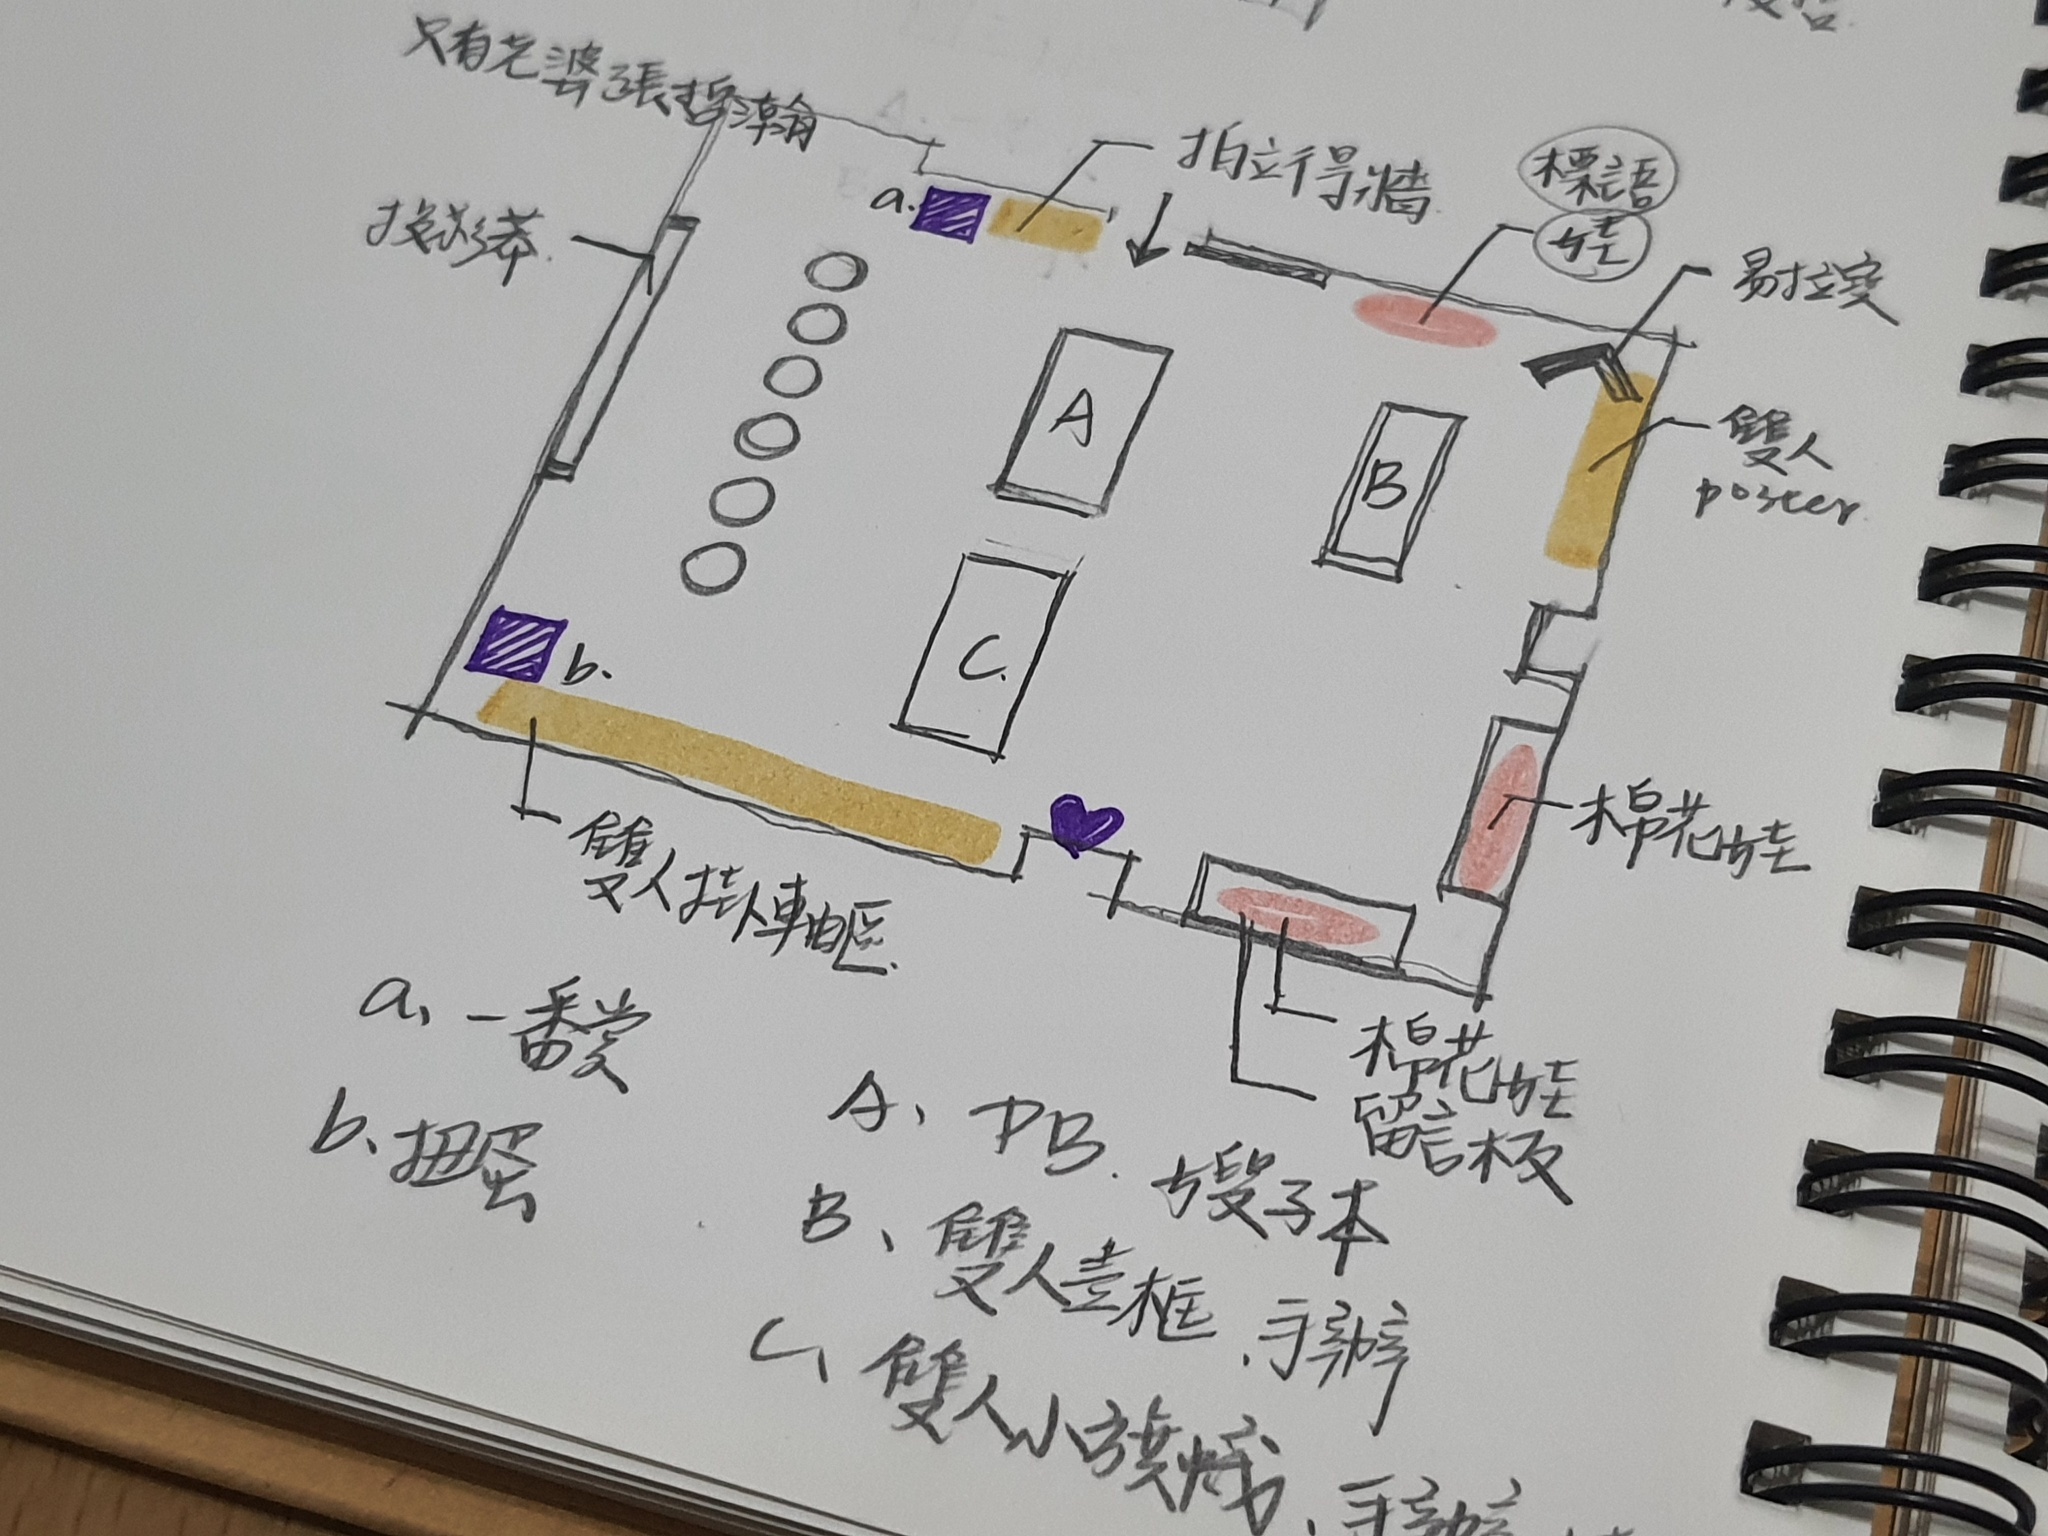 只有老婆張哲瀚
拍立得牆
標語
娃
易拉寶
投影幕
a.
A
B
雙人
poster
b.
C.
棉花娃
雙人掛軸區
棉花娃
留言板
a、一番賞
b、扭蛋
A、PB.嫂子本
B、雙人畫框、手辦
C、雙人小旗幟、手辦